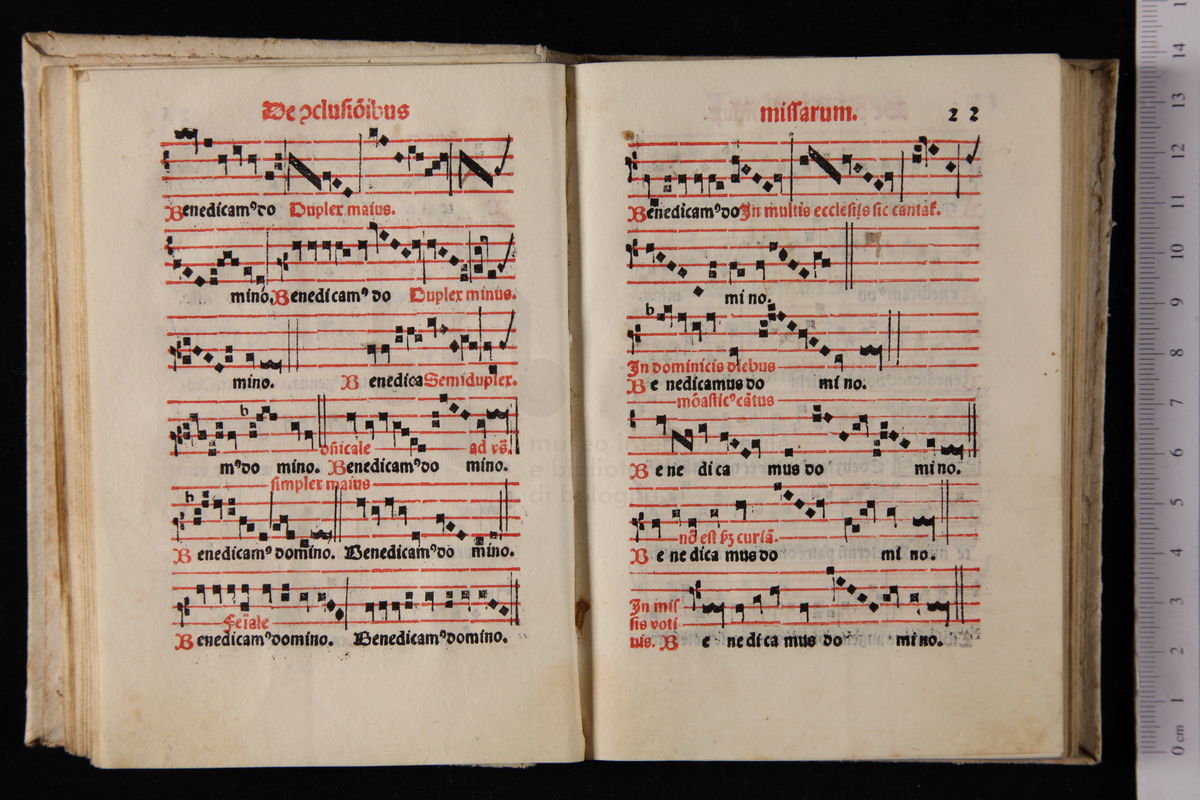 De ↄclusiōibus
Benedicamꝰdo Duplex maius.
mino. Benedicamꝰ do Duplex minus.
mino. Benedica Semiduplex.
b
dñicale ad vs̃.
mꝰdo mino. Benedicamꝰdo mino.
simplex maius
b
Benedicamꝰ domino. Benedicamꝰdo mino.
Feīale
Benedicamꝰdomino. Benedicamꝰdomino.
missarum. 22
Benedicamꝰdo In multis ecclesijs sic cantat̃.
mi no.
b
In dominicis diebus
Be nedicamus do mi no.
mōasticꝰ cātus
Be ne di ca mus do mi no.
nō est ꝑꝫ curiā.
Be ne dica mus do mi no.
In mis
sis voti
uis. Be ne di ca mus do mi no.
museo in
e bibliot
di bologna
14
13
12
11
10
9
8
7
6
5
4
3
2
1
0 cm